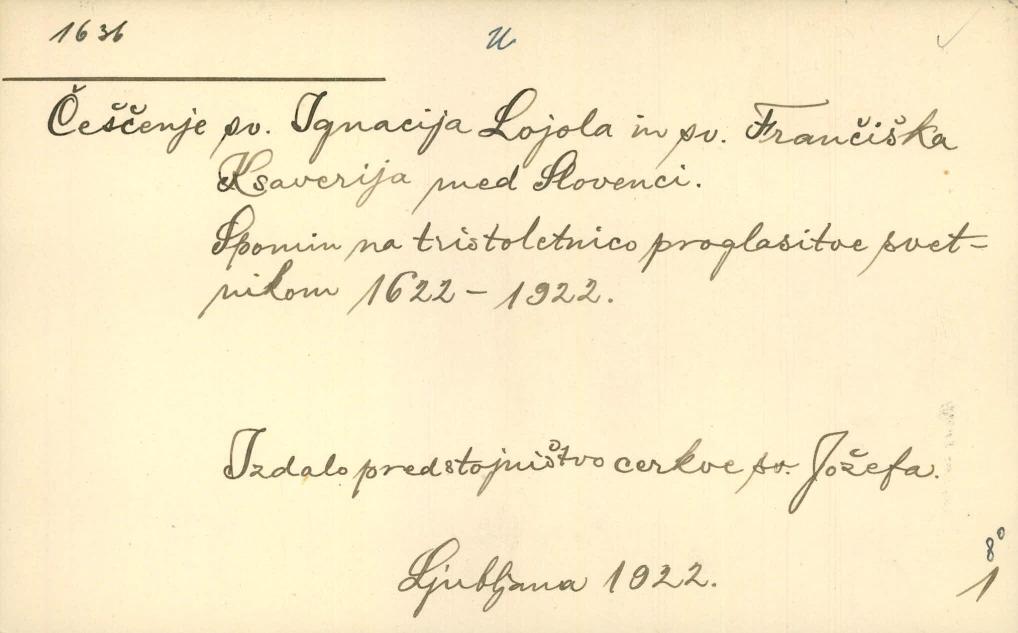 1636
U
Češčenje sv. Ignacija Lojola in sv. Frančiška
Ksaverija med Slovenci.
Spomin na tristoletnico proglasitve svet-
nikom 1622 - 1922.
Izdalo predstojništvo cerkve sv. Jožefa.
Ljubljana 1922.
8°
1